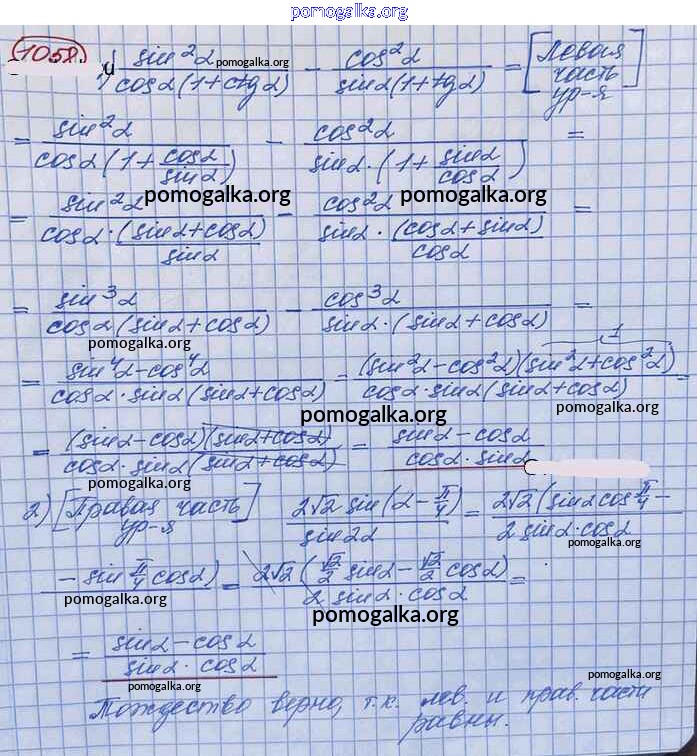 pomogalka.org
1058. 1) sin²α / cosα(1+ctgα) pomogalka.org − cos²α / sinα(1+tgα) = [Левая часть ур-я]
= sin²α / cosα(1+cosα/sinα) − cos²α / sinα·(1+sinα/cosα) =
pomogalka.org pomogalka.org
= sin²α / cosα·(sinα+cosα)/sinα − cos²α / sinα·(cosα+sinα)/cosα =
= sin³α / cosα(sinα+cosα) − cos³α / sinα·(sinα+cosα) =
pomogalka.org
1
= sin⁴α-cos⁴α / cosα·sinα(sinα+cosα) = (sin²α-cos²α)(sin²α+cos²α) / cosα·sinα(sinα+cosα) =
pomogalka.org pomogalka.org
= (sinα-cosα)(sinα+cosα) / cosα·sinα(sinα+cosα) = sinα-cosα / cosα·sinα
pomogalka.org
2) [Правая часть ур-я] 2√2 sin(α-π/4) / sin2α = 2√2(sinαcosπ/4 − / 2sinα·cosα
pomogalka.org
− sinπ/4cosα) = 2√2(√2/2 sinα-√2/2 cosα) / 2sinα·cosα =
pomogalka.org pomogalka.org
= sinα-cosα / sinα·cosα
pomogalka.org pomogalka.org
Тождество верно, т.к. лев. и прав. части
равны.